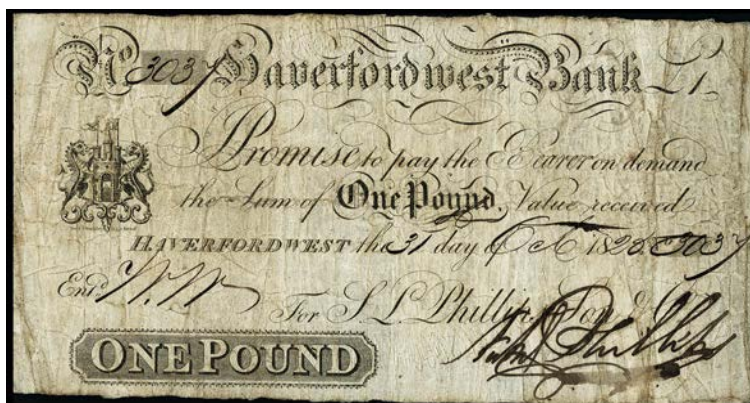 No 3037 Haverfordwest Bank £1.
I Promise to pay the Bearer on demand
the Sum of One Pound. Value received
HAVERFORDWEST the 31 day of Oct 1825. 3037
Entd W.W
For S. L. Phillips
ONE POUND Phillips